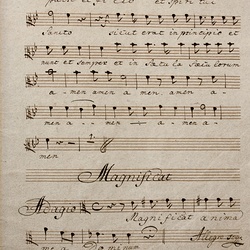 Patri et Filio et Spiritui
Sancto sicut erat in principio et
nunc et semper et in Sæcula Sæculorum
a - men amen a men amen a -
men a - - men - a - men, a -
men
Magnificat
Adagio
Magnificat anima
me a Dominum Allegro